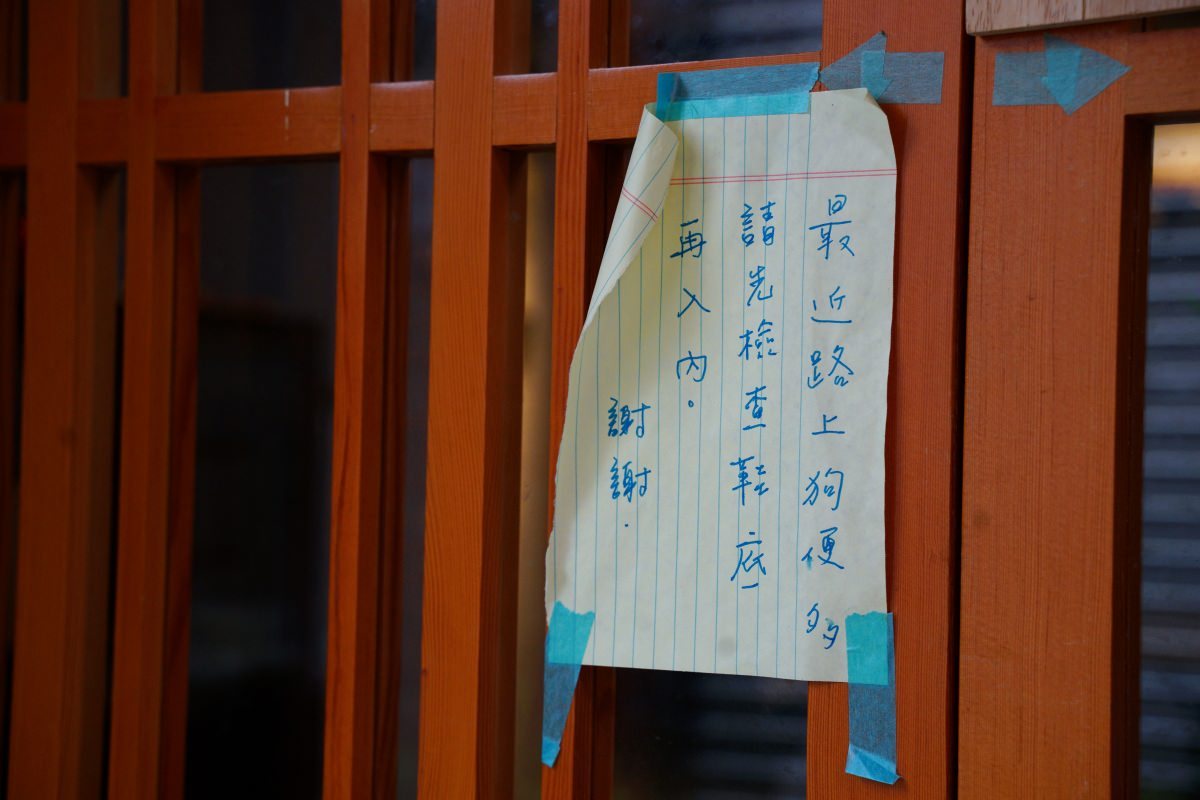 最近路上狗便多
請先檢查鞋底
再入內。
謝謝.